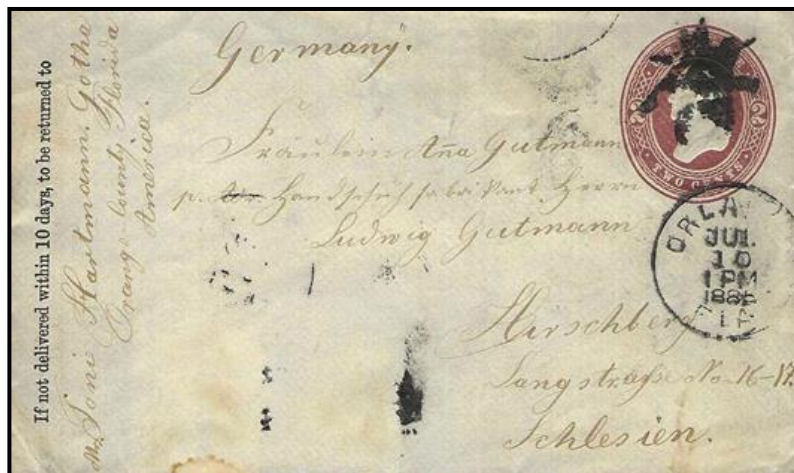 If not delivered within 10 days, to be returned to
Mr. Toni Hartmann. Gotha
Orange County Florida
America.
Germany.
Fräulein Aña Gutmann
Handschuhfabrikant Herrn
Ludwig Gutmann
Hirschberg
Langstraße No 16-17.
Schlesien.
TWO CENTS
ORLA
JUL
10
1 PM
188